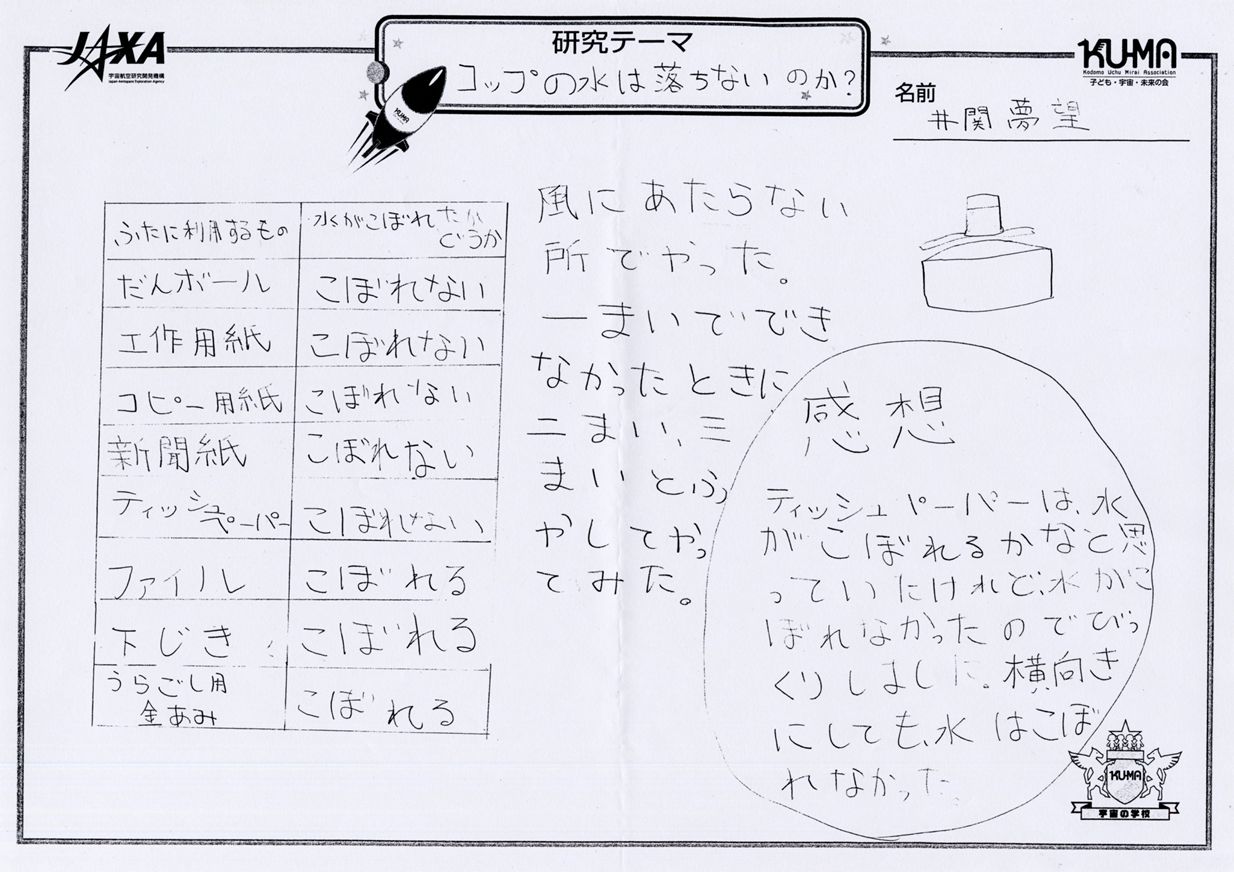 JAXA
宇宙航空研究開発機構
Japan Aerospace Exploration Agency
研究テーマ
コップの水は落ちないのか?
KUMA
KU-MA
Kodomo Uchu Mirai Association
子ども・宇宙・未来の会
名前
井関夢望
ふたに利用するもの 水がこぼれたか
どうか
だんボール こぼれない
工作用紙 こぼれない
コピー用紙 こぼれない
新聞紙 こぼれない
ティッシュ
ペーパー こぼれない
ファイル こぼれる
下じき こぼれる
うらごし用
金あみ こぼれる
風にあたらない
所でやった。
一まいででき
なかったときに
二まい、三
まいとふ
やしてやっ
てみた。
感想
ティッシュペーパーは、水
がこぼれるかなと思
っていたけれど、水がこ
ぼれなかったのでびっ
くりしました。横向き
にしても、水はこぼ
れなかった。
KU-MA
宇宙の学校